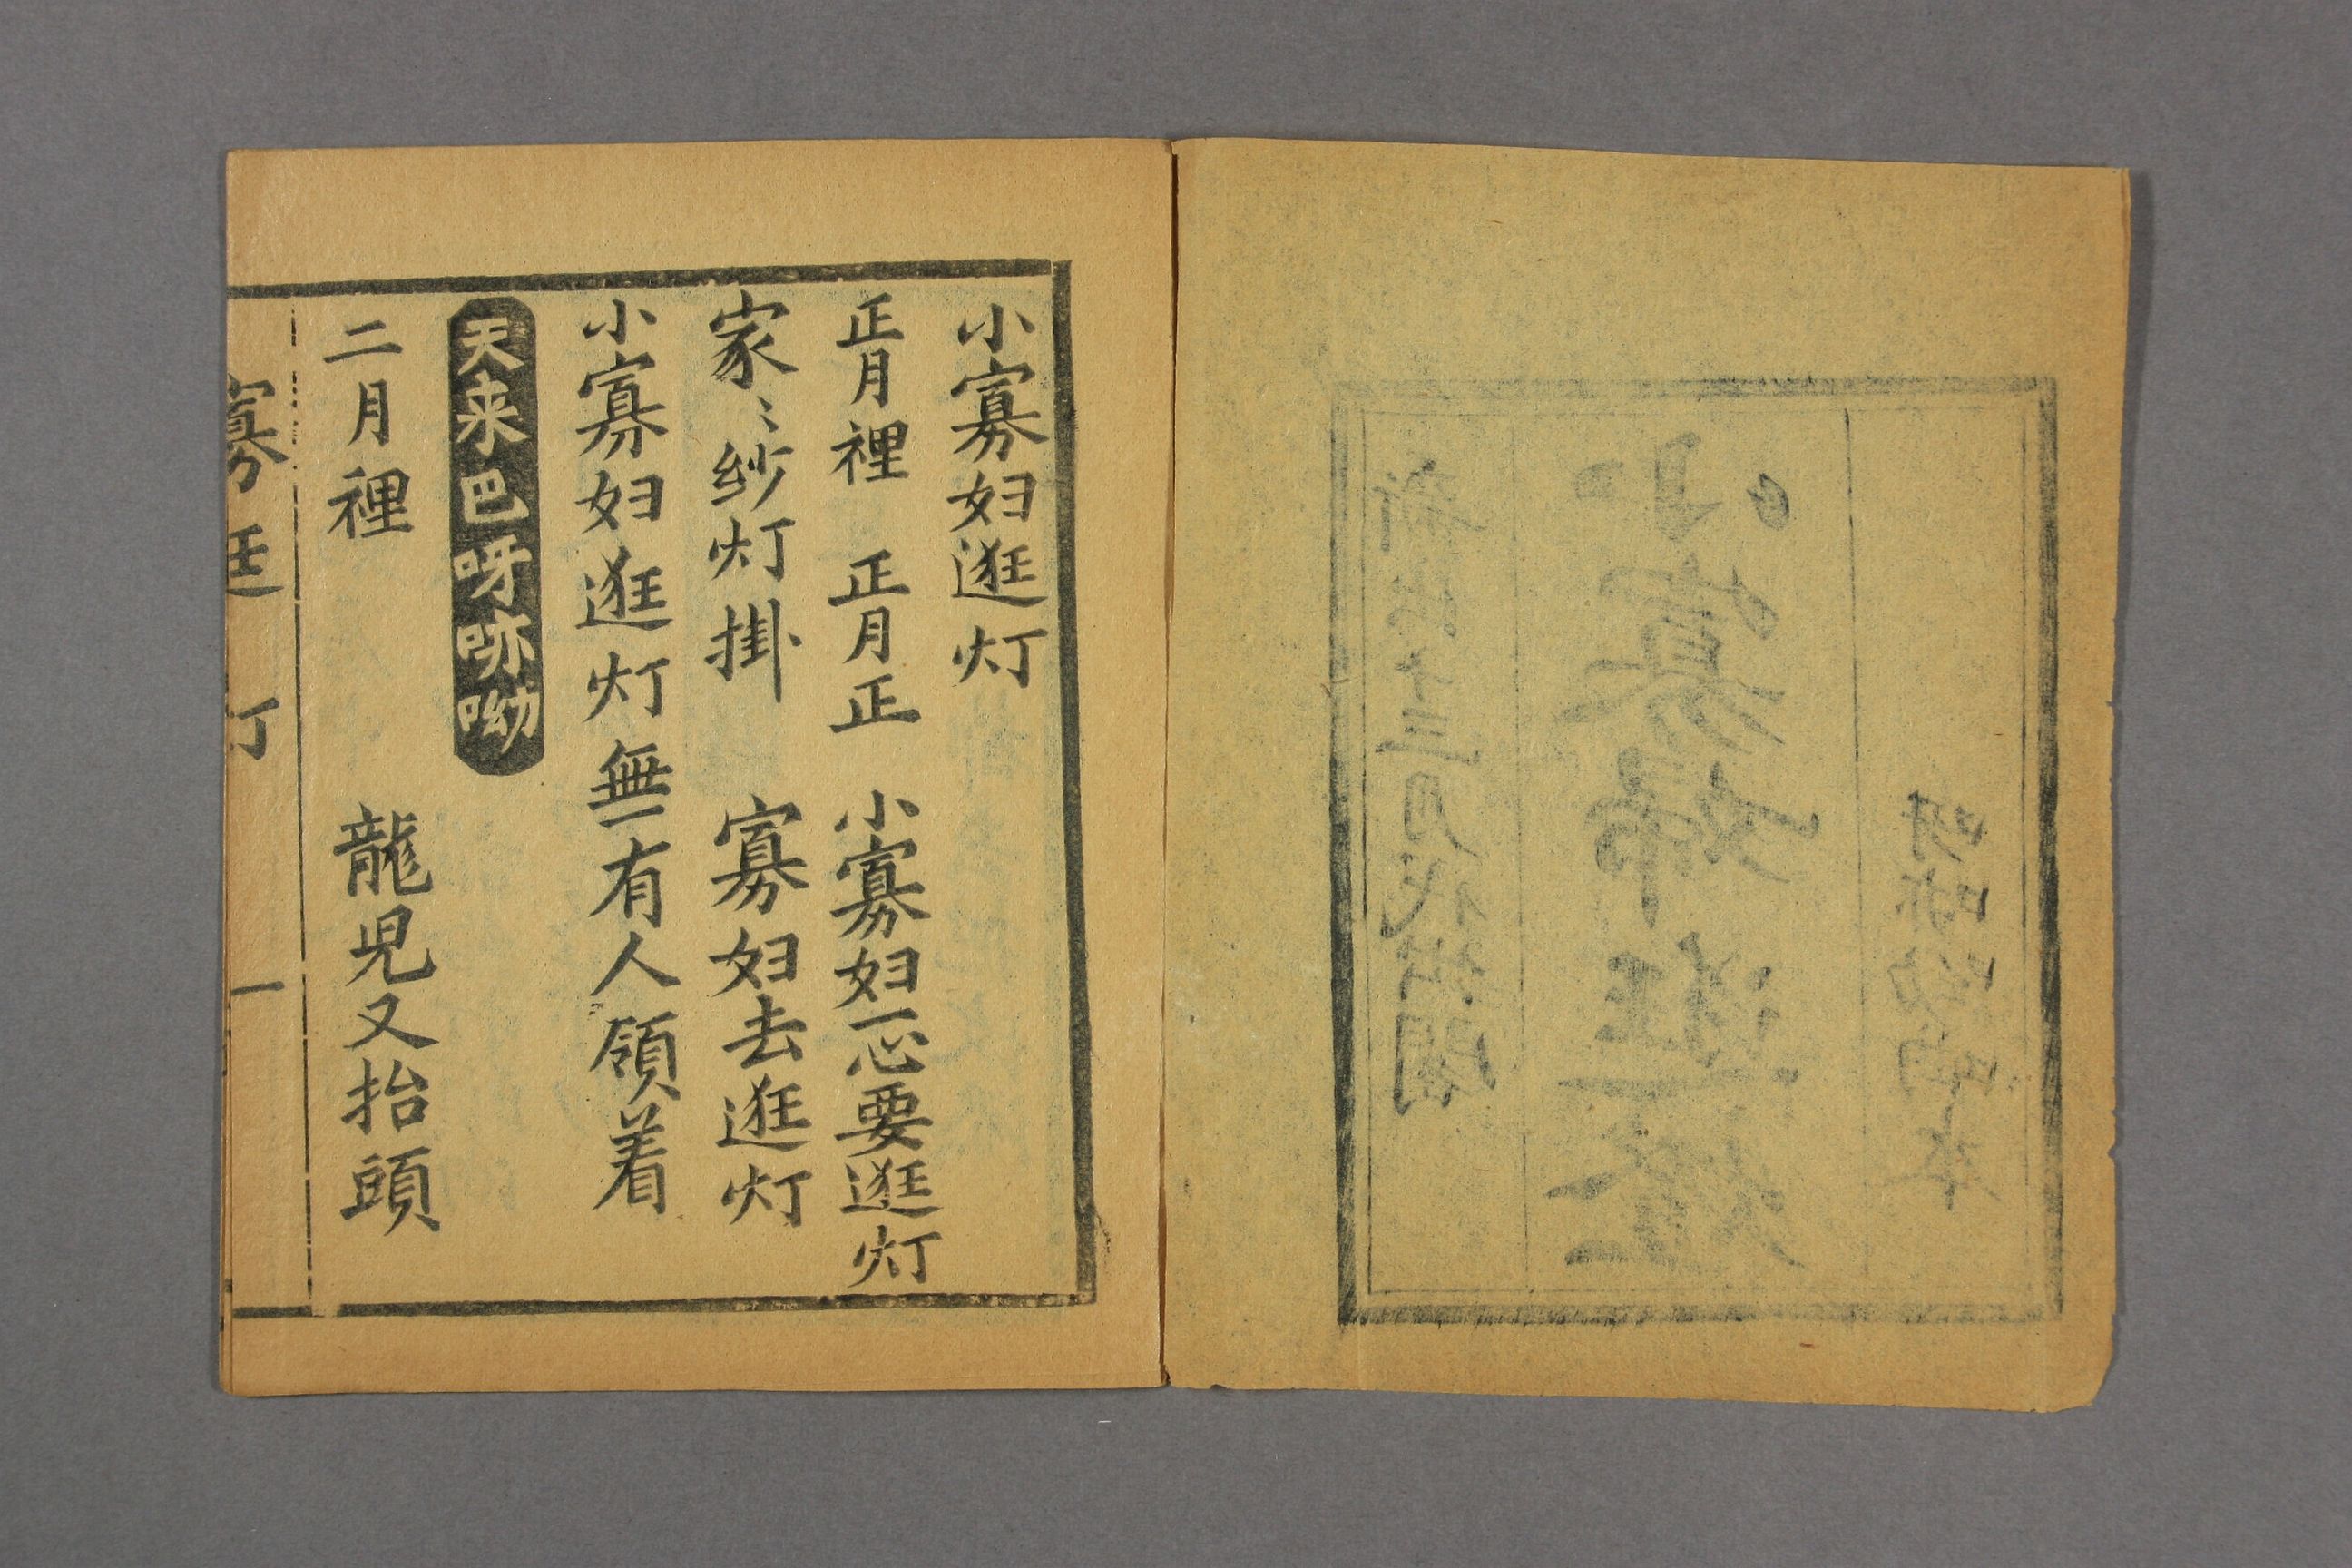 小寡妇逛燈
小寡妇逛灯
正月裡　正月正　小寡妇一心要逛灯
家〻纱灯掛　寡妇去逛灯
小寡妇逛灯無有人領着
天来巴呀咴呦
二月裡　龍児又抬頭
寡逛灯　一